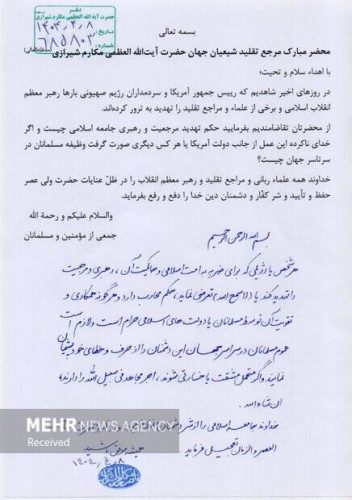 بسمه تعالی
دفتر
حضرت آیة الله العظمی مکارم شیرازی
تاریخ: ۱۴۰۴،۴،۸
شماره: ۶۸۵۸۰۳
محضر مبارک مرجع تقلید شیعیان جهان حضرت آیت‌الله العظمی مکارم شیرازی
با اهداء سلام و تحیت؛
در روزهای اخیر شاهدیم که رییس جمهور آمریکا و سردمداران رژیم صهیونی بارها رهبر معظم
انقلاب اسلامی و برخی از علماء و مراجع تقلید را تهدید به ترور کرده‌اند.
از محضرتان تقاضامندیم بفرمایید حکم تهدید مرجعیت و رهبری جامعه اسلامی چیست و اگر
خدای ناکرده این عمل از جانب دولت آمریکا یا هر کس دیگری صورت گرفت وظیفه مسلمانان در
سرتاسر جهان چیست؟
خداوند همه علماء ربانی و مراجع تقلید و رهبر معظم انقلاب را در ظلّ عنایات حضرت ولی عصر
حفظ و تأیید و شر کفّار و دشمنان دین خدا را دفع و رفع بفرماید.
والسلام علیکم و رحمة الله
جمعی از مؤمنین و مسلمانان
بسم الله الرحمن الرحیم
هر شخص یا رژیمی که برای ضربه به امت اسلامی و حاکمیت آن، رهبری و مرجعیت
را تهدید کند یا (لا سمح الله) تعرضی نماید، حکم محارب دارد و هرگونه همکاری و
تقویت آن توسط مسلمانان یا دولت های اسلامی حرام است و لازم است
عموم مسلمانان در سراسر جهان این دشمنان را از حرف و خطای خود پشیمان
نمایند و اگر متحمل مشقت یا خسارتی شوند، اجر مجاهد فی سبیل الله را دارند،
ان شاء الله.
خداوند جامعه اسلامی را از شر
العصر و الزمان تعجیل فرماید
همیشه موفق باشید
۱۴۰۴،۴،۸
MEHR NEWS AGENCY
Received